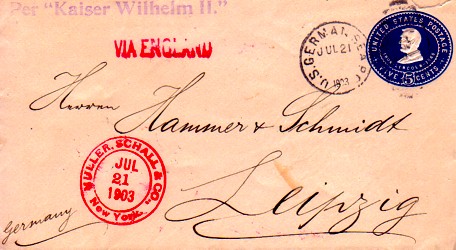 Per "Kaiser Wilhelm II."
VIA ENGLAND
U.S. GERMAN SEA P.
JUL 21
1903
UNITED STATES POSTAGE
FIVE 5 CENTS
Herren
Hammer & Schmidt
MULLER, SCHALL & CO.,
JUL
21
1903
New York.
Leipzig
Germany